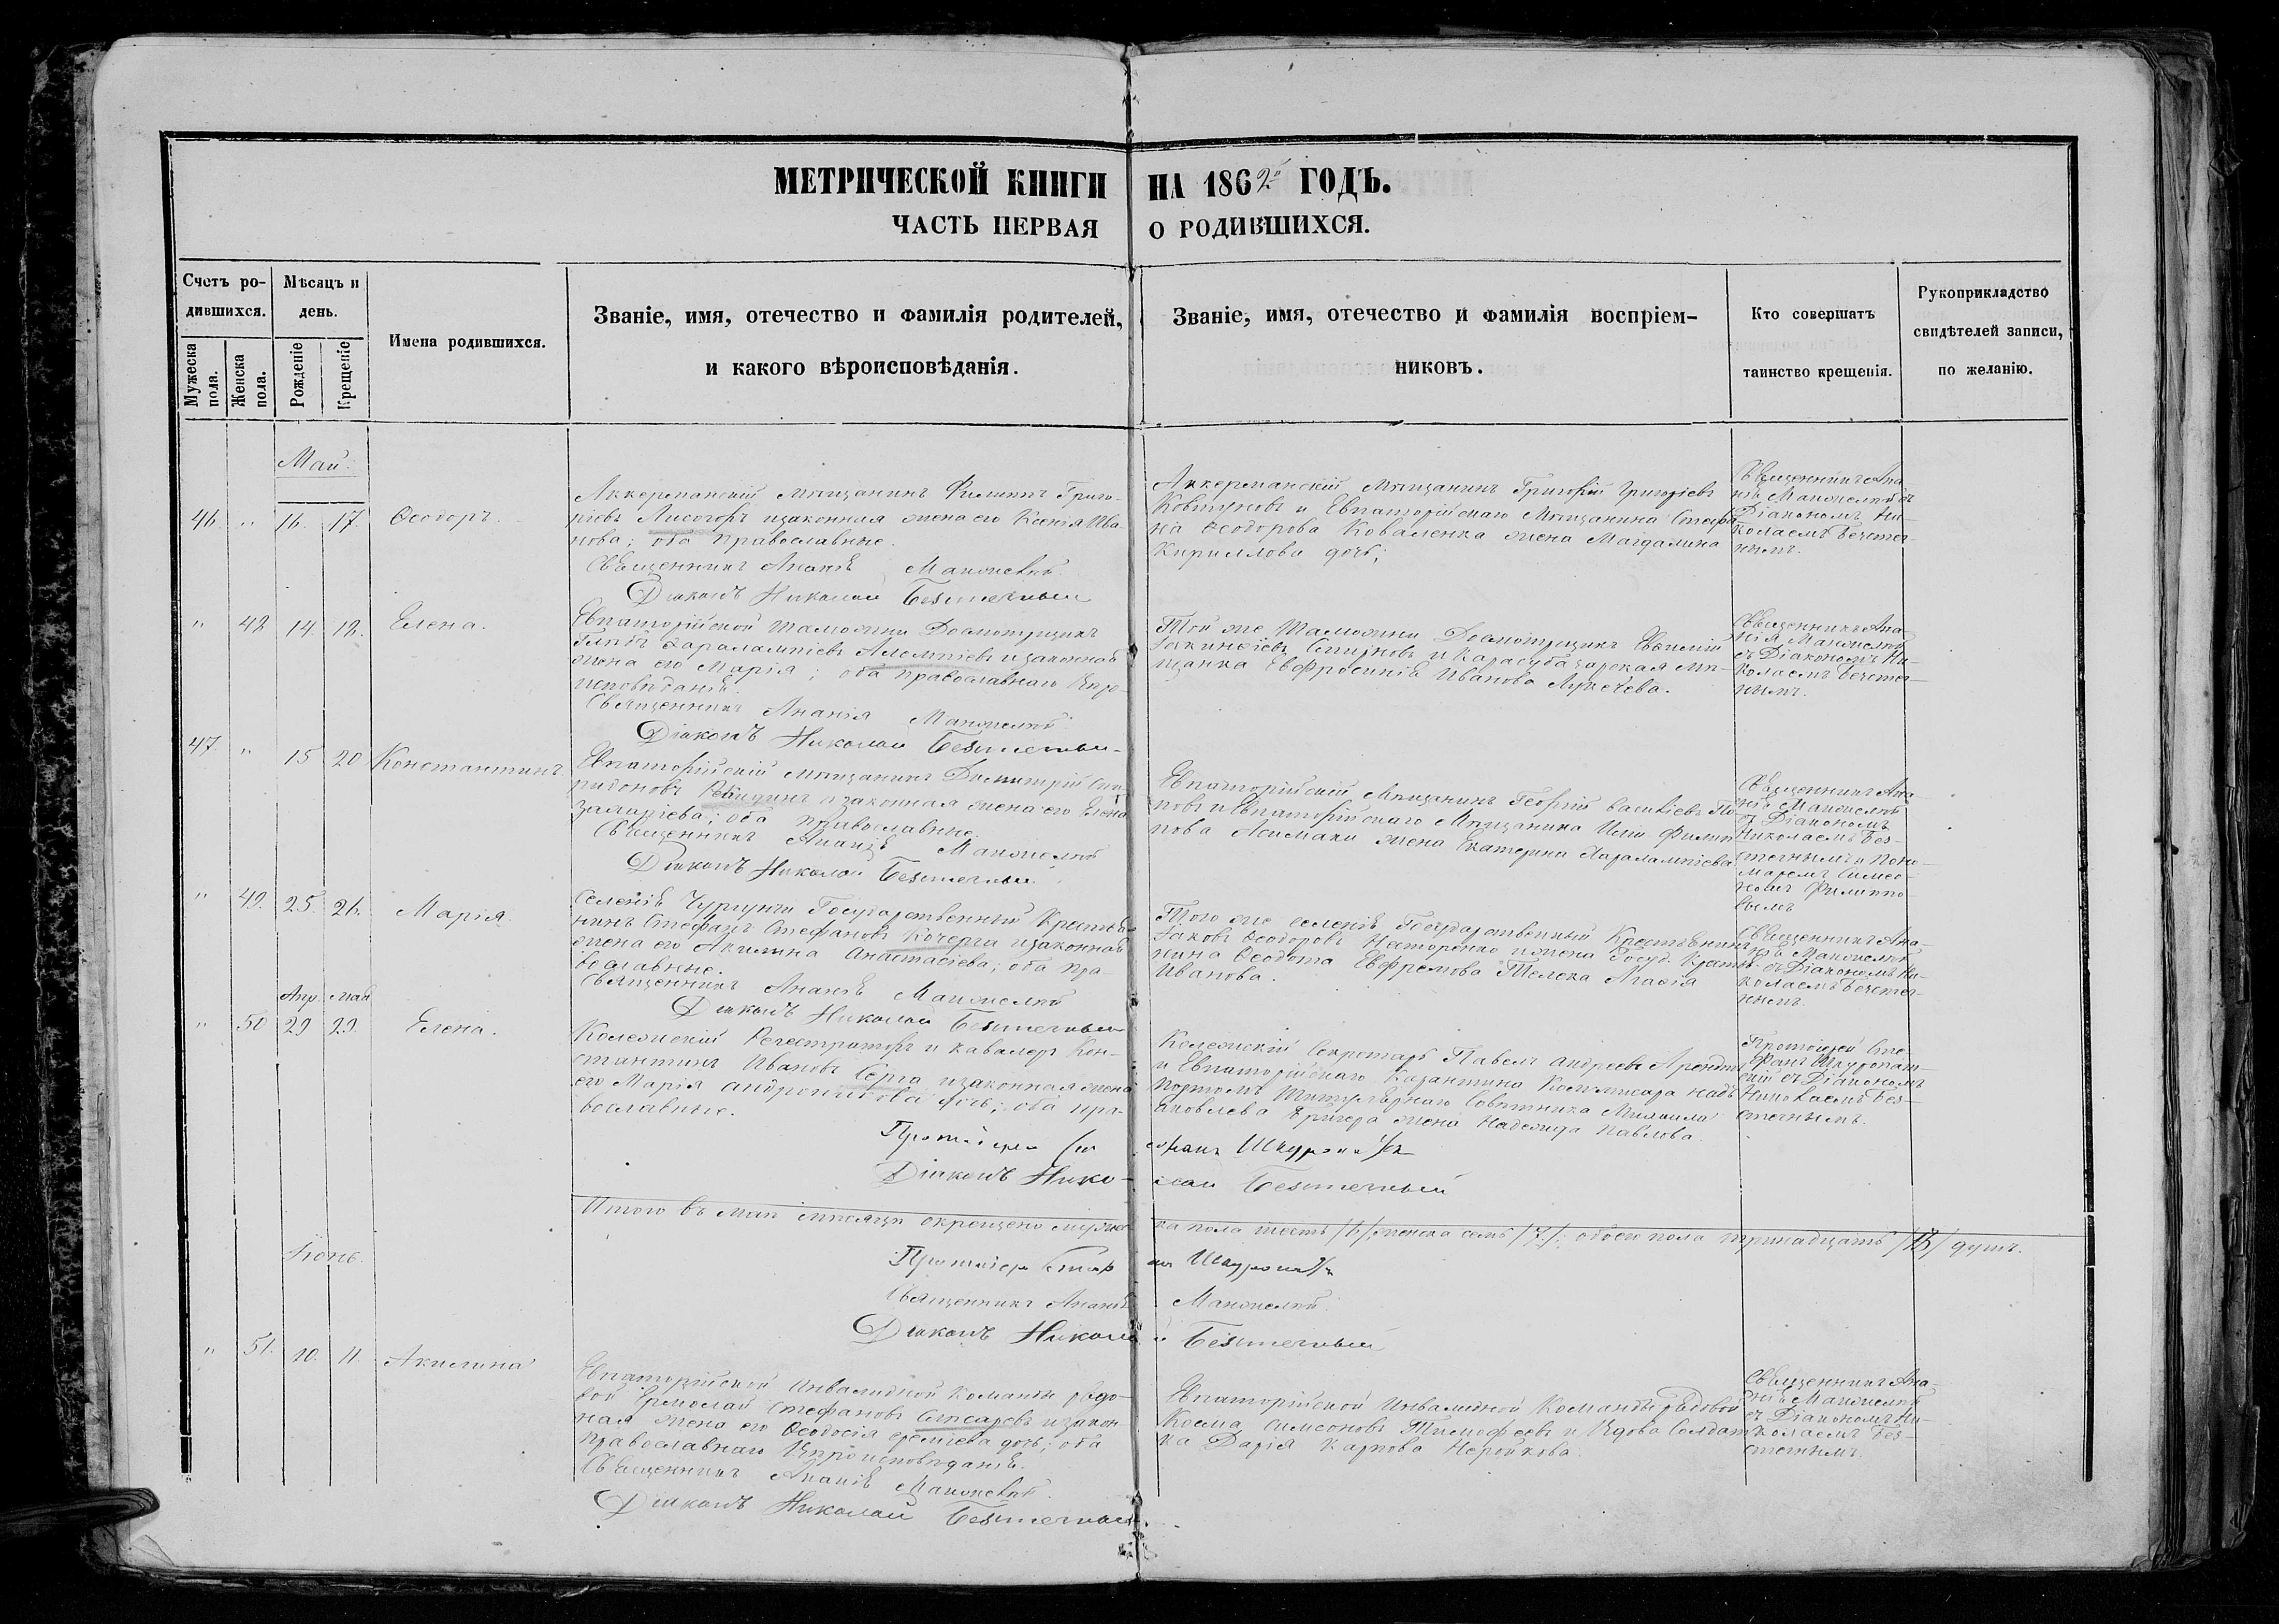 МЕТРИЧЕСКОЙ КНИГИ НА 1862й ГОДЪ.
ЧАСТЬ ПЕРВАЯ О РОДИВШИХСЯ.
Счетъ ро-
дившихся.
Мужеска
пола.
Женска
пола.
Мѣсяцъ и
день.
Рожденіе
Крещеніе
Имена родившихся.
Званіе, имя, отечество и фамилія родителей,
и какого вѣроисповѣданія.
Званіе, имя, отечество и фамилія воспріем-
никовъ.
Кто совершатъ
таинство крещенія.
Рукоприкладство
свидѣтелей записи,
по желанію.
Май.
46. " 16. 17. Ѳеодоръ.
Аккерманскій мѣщанинъ Филиппъ Григо-
ріевъ Лисогоръ и законная жена его Ксенія Ива-
нова; оба православные.
Священникъ Ананія
Діаконъ Николай Безтечный
Аккерманскій Мѣщанинъ Григорій Григоріевъ
Ковтуновъ и Евпаторійскаго Мѣщанина Стефа-
на Ѳеодорова Коваленка жена Магдалина
Кириллова дочь;
Священникъ Ана-
нія
Діакономъ Ни-
колаемъ Безтеч-
нымъ.
" 48 14. 18. Елена.
Евпаторійской Таможни Досмотрщикъ
Харалампіевъ и законная
жена его Марія; оба православнаго вѣро-
исповѣданія.
Священникъ Ананія
Діаконъ Николай Безтечный
Той же Таможни Досмотрщикъ
Смирновъ и Карасубазарская Мѣ-
щанка Евфросинія Иванова
Священникъ Ана-
нія
съ Діакономъ Ни-
колаемъ Безтеч-
нымъ.
47. " 15 20 Константинъ.
Евпаторійскій мѣщанинъ Димитрій Спи-
ридоновъ и законная жена его Елена
оба православные.
Священникъ Ананія
Діаконъ Николай Безтечный
Евпаторійскій Мѣщанинъ Георгій Василіевъ По-
повъ и Евпаторійскаго Мѣщанина Филип-
пова жена Екатерина Харалампіева
Священникъ Ана-
нія
съ Діакономъ
Николаемъ Без-
течнымъ и Поно-
маремъ Симео-
номъ Филиппо-
вымъ
" 49. 25. 26. Марія.
Селенія Чургунчи Государственный Крестья-
нинъ Стефанъ Стефановъ Кочерга и законная
жена его Акилина Анастасіева; оба пра-
вославные.
Священникъ Ананія
Діаконъ Николай Безтечный
Того же селенія Государственный Крестьянинъ
Іаковъ Ѳеодоровъ Нагоренко и жена Госуд. Крестья-
нина Ѳеодота Евфремова Агафія
Иванова.
Священникъ Ана-
нія
съ Діакономъ Ни-
колаемъ Безтеч-
нымъ.
Апр. Мая
" 50 29 29. Елена.
Колежскій Регестраторъ и Кавалеръ Кон-
стантинъ Ивановъ Серга и законная жена
его Марія Андроникова дочь; оба пра-
вославные.
Колежскій Секретарь Павелъ Андреевъ
и Евпаторійскаго Карантина Коммисара надъ
портомъ Титулярнаго Совѣтника Михаила
Яковлева жена Надежда Павлова.
Протоіерей Сте-
фанъ Шкуропат-
скій съ Діакономъ
Николаемъ Без-
течнымъ.
Протоіерей Стефанъ
Діаконъ Николай Безтечный
Итого въ Маѣ мѣсяцѣ окрещено мужеска пола шесть /6/, женска семь /7/; обоего пола тринадцать /13/ душъ.
Протоіерей Стефанъ
Священникъ Ананія
Діаконъ Николай Безтечный
Іюнь.
" 51. 10. 11. Акилина
Евпаторійской Инвалидной Команды рядо-
вой Ермолай Стефановъ и закон-
ная жена его Ѳеодосія дочь; оба
православнаго Вѣроисповѣданія.
Священникъ Ананія
Діаконъ Николай Безтечный
Евпаторійской Инвалидной Команды Рядовой
Косма Симеоновъ Тимофеевъ и Вдова Солдат-
ка Дарія Карпова
Священникъ Ана-
нія
съ Діакономъ Ни-
колаемъ Без-
течнымъ.